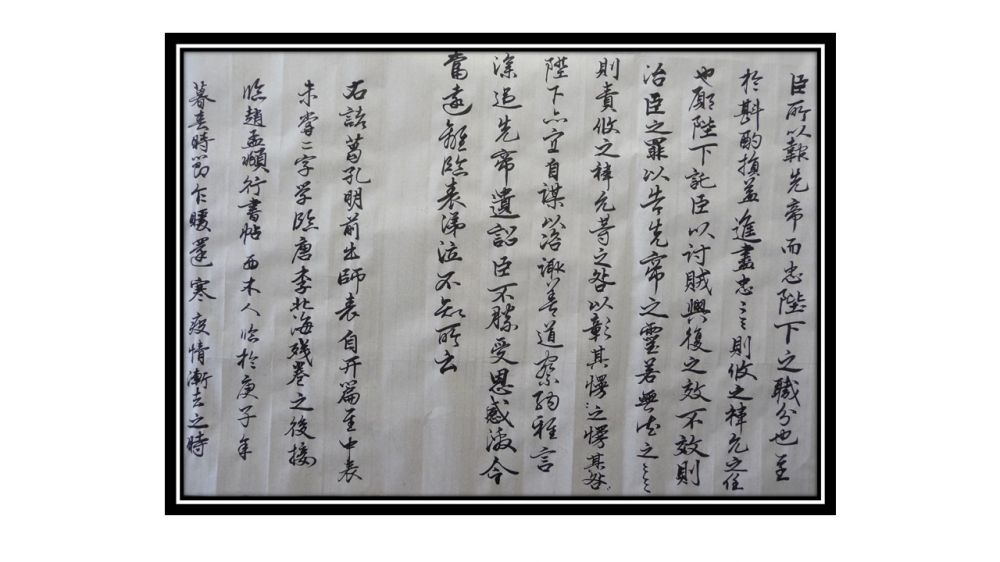 臣所以報先帝而忠陛下之職分也至
於斟酌損益進盡忠言則攸之褘允之任
也願陛下託臣以討賊興復之效不效則
治臣之罪以告先帝之靈若無之言
則責攸之褘允等之咎以彰其慢之慢其咎
陛下亦宜自謀以諮諏善道察納雅言
深追先帝遺詔臣不勝受恩感激今
當遠離臨表涕泣不知所云
右諸葛孔明前出師表自开篇至中表
未嘗二字学臨唐李北海残卷之後接
臨趙孟頫行書帖 西木人臨於庚子年
暮春時節乍暖還寒 疫情漸去之時